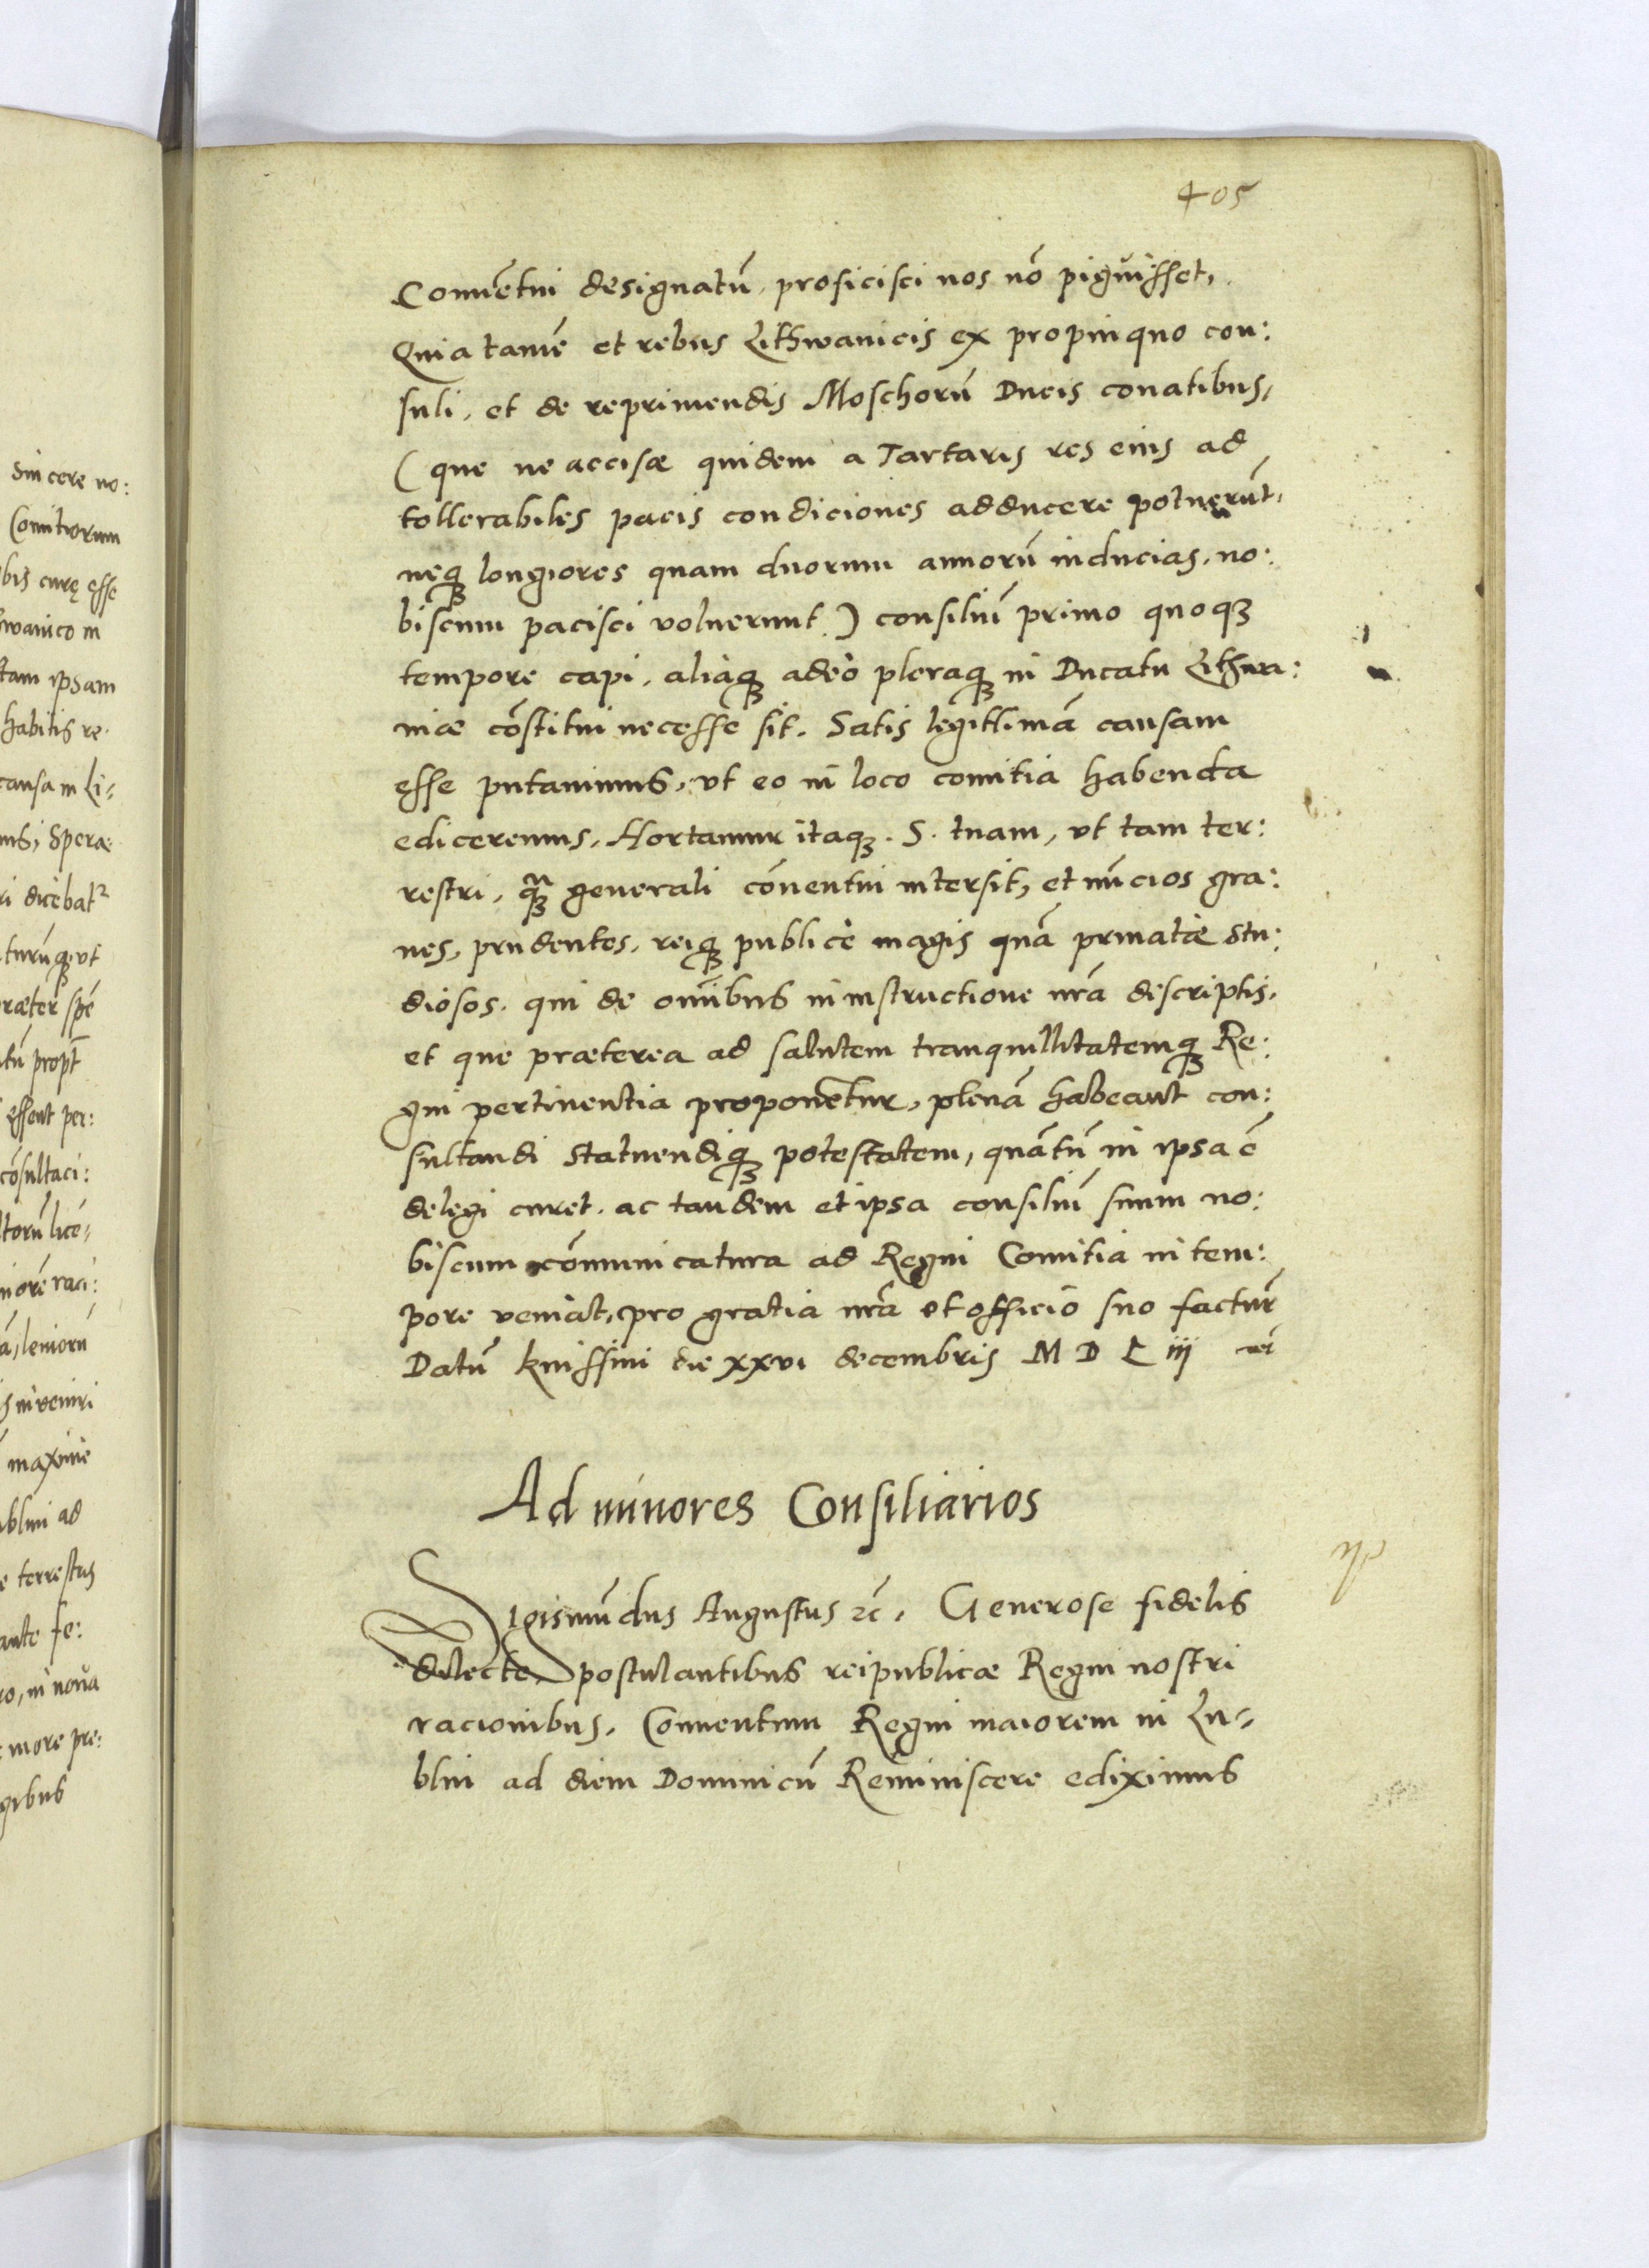 405
Conuētui designatū, proficisci nos nō piguisset,
Quia tamē et rebus Lithwanicis ex propinquo con:
suli, et de reprimendis Moschorū Ducis conatibus,
(que ne accisæ quidem a Tartaris res eius ad
tollerabiles pacis condiciones adducere potuerūt,
neqꝫ longiores quam duorum annorū inducias, no:
biscum pacisci voluerunt) consiliū primo quoqꝫ
tempore capi, aliaqꝫ adeò pleraqꝫ in Ducatu Lithwa:
niæ cōstitui necesse sit. Satis legittimā causam
esse putauimus, vt eo in loco comitia habenda
ediceremus, Hortamur itaqꝫ. S. tuam, vt tam ter:
restri, qꝫ generali cōuentui intersit, et nūcios gra:
ues, prudentes, reiqꝫ publicè magis quā priuatæ stu:
diosos, qui de omībus in instructione nrā descriptis,
et que præterea ad salutem tranquillitatemqꝫ Re:
gni pertinentia proponētur, plenā habeant con:
sultandi statuendiqꝫ potestatem, quātū in ipsa ē
delegi curet, ac tandem et ipsa consiliū suum no:
biscum cōmunicatura ad Regni Comitia in tem:
pore veniat, pro gratia nrā et officio suo factur̄
Datū Knissini die xxvi decembris M D L iij
Ad minores Consiliarios
Sigismūdus Augustus ꝛc̄. Generose fidelis
dilecte, postulantibus reipublicæ Regni nostri
racionibus, Conuentum Regni maiorem in Lu-
blin ad diem Dominicū Reminiscere ediximus
sincere no:
Comitiorum
bis curę esse
wanico in
tam ipsam
habitis re
causa in Li-
ri dicebat
turūqꝫ vt
ræter spē
essent per:
cōsultaci:
niorē raci:
leniorū
inueniri
maximè
blini ad
terrestris
ante fe:
in noua
more pre: